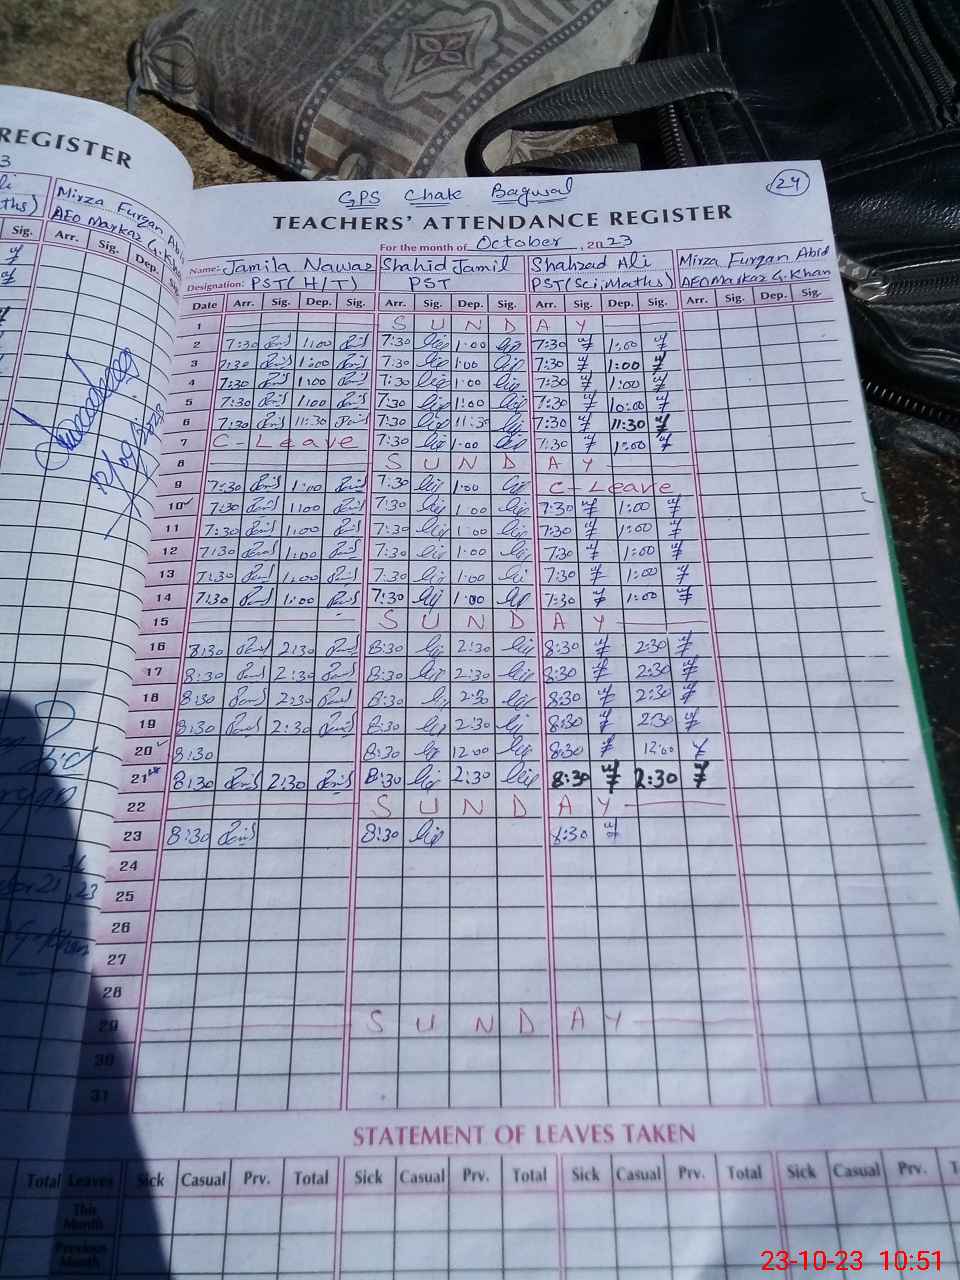 REGISTER
Mirza Furqan Abid
AEO Markaz G. Khan
Sig. Arr. Sig. Dep.
GPS Chak Bagwal
24
TEACHERS' ATTENDANCE REGISTER
For the month of October, 2023
Name: Jamila Nawaz Shahid Jamil Shahzad Ali Mirza Furqan Abid
Designation: PST(H/T) PST PST(Sci, Maths) AEO Markaz G. Khan
Date Arr. Sig. Dep. Sig. Arr. Sig. Dep. Sig. Arr. Sig. Dep. Sig. Arr. Sig. Dep. Sig.
1 S U N D A Y
2 7:30 1:00 7:30 1:00 7:30 1:00
3 7:30 1:00 7:30 1:00 7:30 1:00
4 7:30 1:00 7:30 1:00 7:30 1:00
5 7:30 1:00 7:30 1:00 7:30 10:00
6 7:30 11:30 7:30 11:30 7:30 11:30
7 C-Leave 7:30 1:00 7:30 1:00
8 S U N D A Y
9 7:30 1:00 7:30 1:00 C-Leave
10 7:30 1:00 7:30 1:00 7:30 1:00
11 7:30 1:00 7:30 1:00 7:30 1:00
12 7:30 1:00 7:30 1:00 7:30 1:00
13 7:30 1:00 7:30 1:00 7:30 1:00
14 7:30 1:00 7:30 1:00 7:30 1:00
15 S U N D A Y
16 8:30 2:30 8:30 2:30 8:30 2:30
17 8:30 2:30 8:30 2:30 8:30 2:30
18 8:30 2:30 8:30 2:30 8:30 2:30
19 8:30 2:30 8:30 2:30 8:30 2:30
20 8:30 8:30 12:00 8:30 12:00
21 8:30 2:30 8:30 2:30 8:30 2:30
22 S U N D A Y
23 8:30 8:30 8:30
24
25
26
27
28
29 S U N D A Y
30
31
STATEMENT OF LEAVES TAKEN
Total Leaves Sick Casual Prv. Total Sick Casual Prv. Total Sick Casual Prv. Total Sick Casual Prv.
This Month
Previous Month
23-10-23 10:51